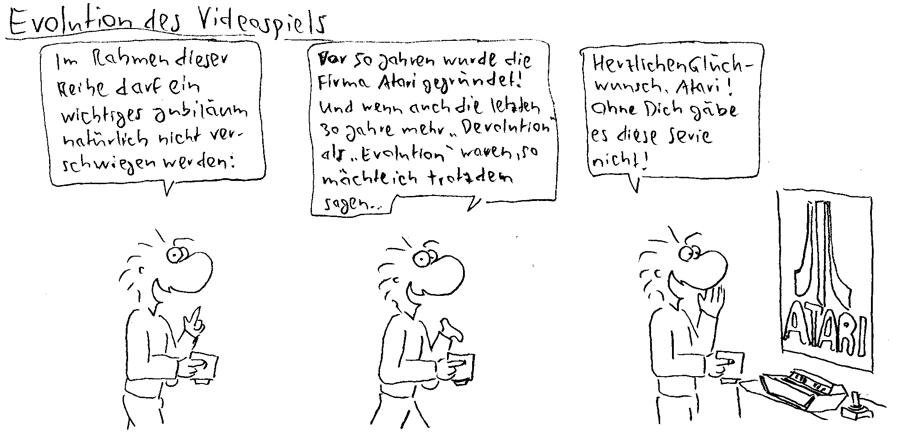 Evolution des Videospiels
Im Rahmen dieser
Reihe darf ein
wichtiges Jubiläum
natürlich nicht ver-
schwiegen werden:
Vor 50 Jahren wurde die
Firma Atari gegründet!
Und wenn auch die letzten
30 Jahre mehr „Devolution“
als „Evolution“ waren, so
möchte ich trotzdem
sagen..
Herzlichen Glück-
wunsch, Atari!
Ohne Dich gäbe
es diese Serie
nicht!
ATARI